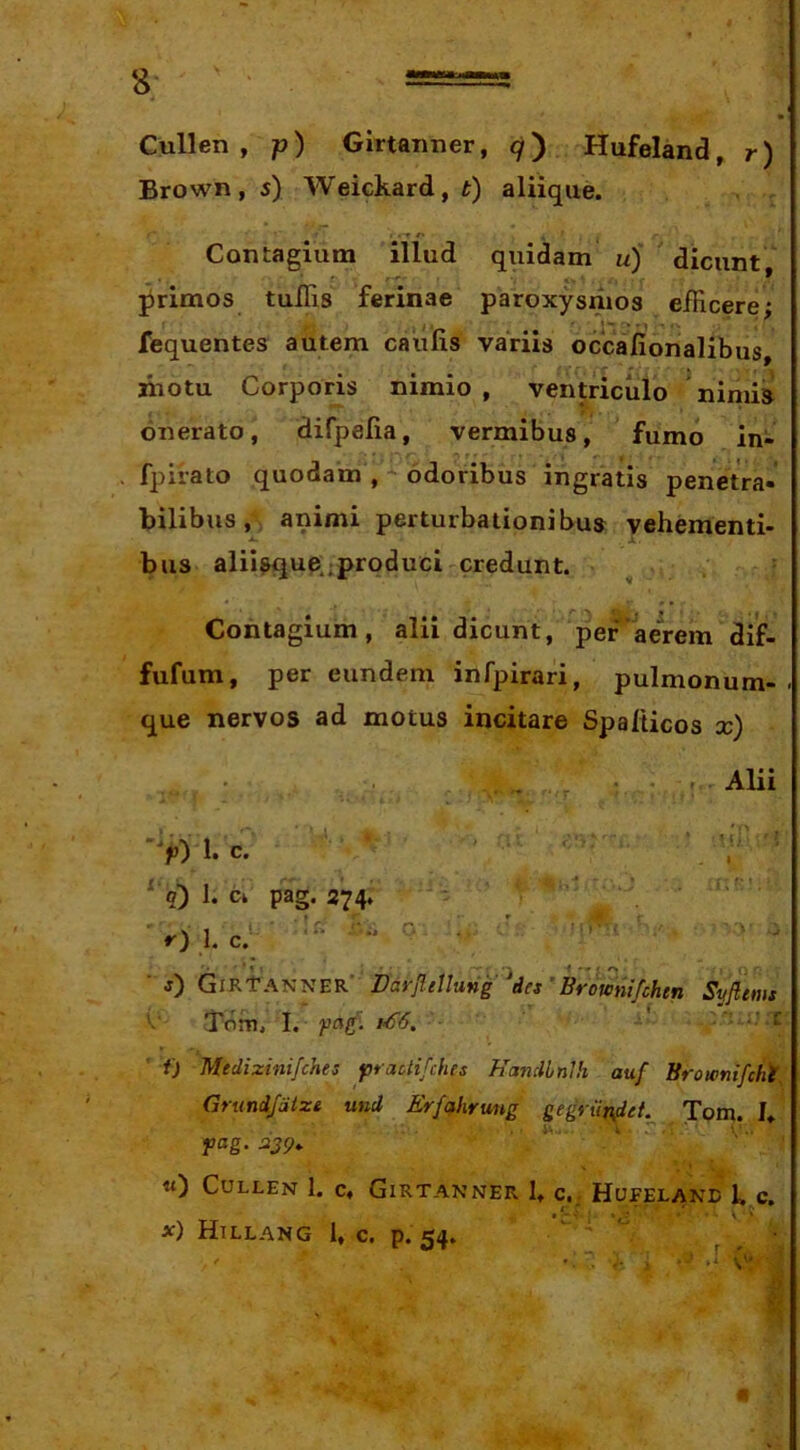 8
Cullen , p) Girtanner, q) Hufeland, r)
Brown, s) Weickard, t) aliique.
Contagium illud quidam u) dicunt,
primos tuſſis ferinae paroxysmos efficere;
ſequentes autem cauſis variis occaſionalibus,
motu Corporis nimio , ventriculo nimis
onerato, diſpeſia, vermibus, fumo in-
ſpirato quodam , odoribus ingratis penetra-
bilibus, animi perturbationibus vehementi-
bus aliisque produci credunt.
Contagium, alii dicunt, per aerem dif-
fuſum, per eundem inſpirari, pulmonum-
que nervos ad motus incitare Spaſticos x)
Alii
p) l. c.
q) l. c. pag. 274.
r) l. c.
s) GIRTANNER Darſtellung des Browniſchen Syſtems
Tom. I. pag. 166.
t) Mediziniſches practiſches Handbuch auf Browniſche
Grundſätze und Erfahrung gegründet. Tom. I.
pag. 239.
u) CULLEN l. c. GIRTANNER l. c. HUFELAND l. c.
x) HILLANG l. c. p. 54.